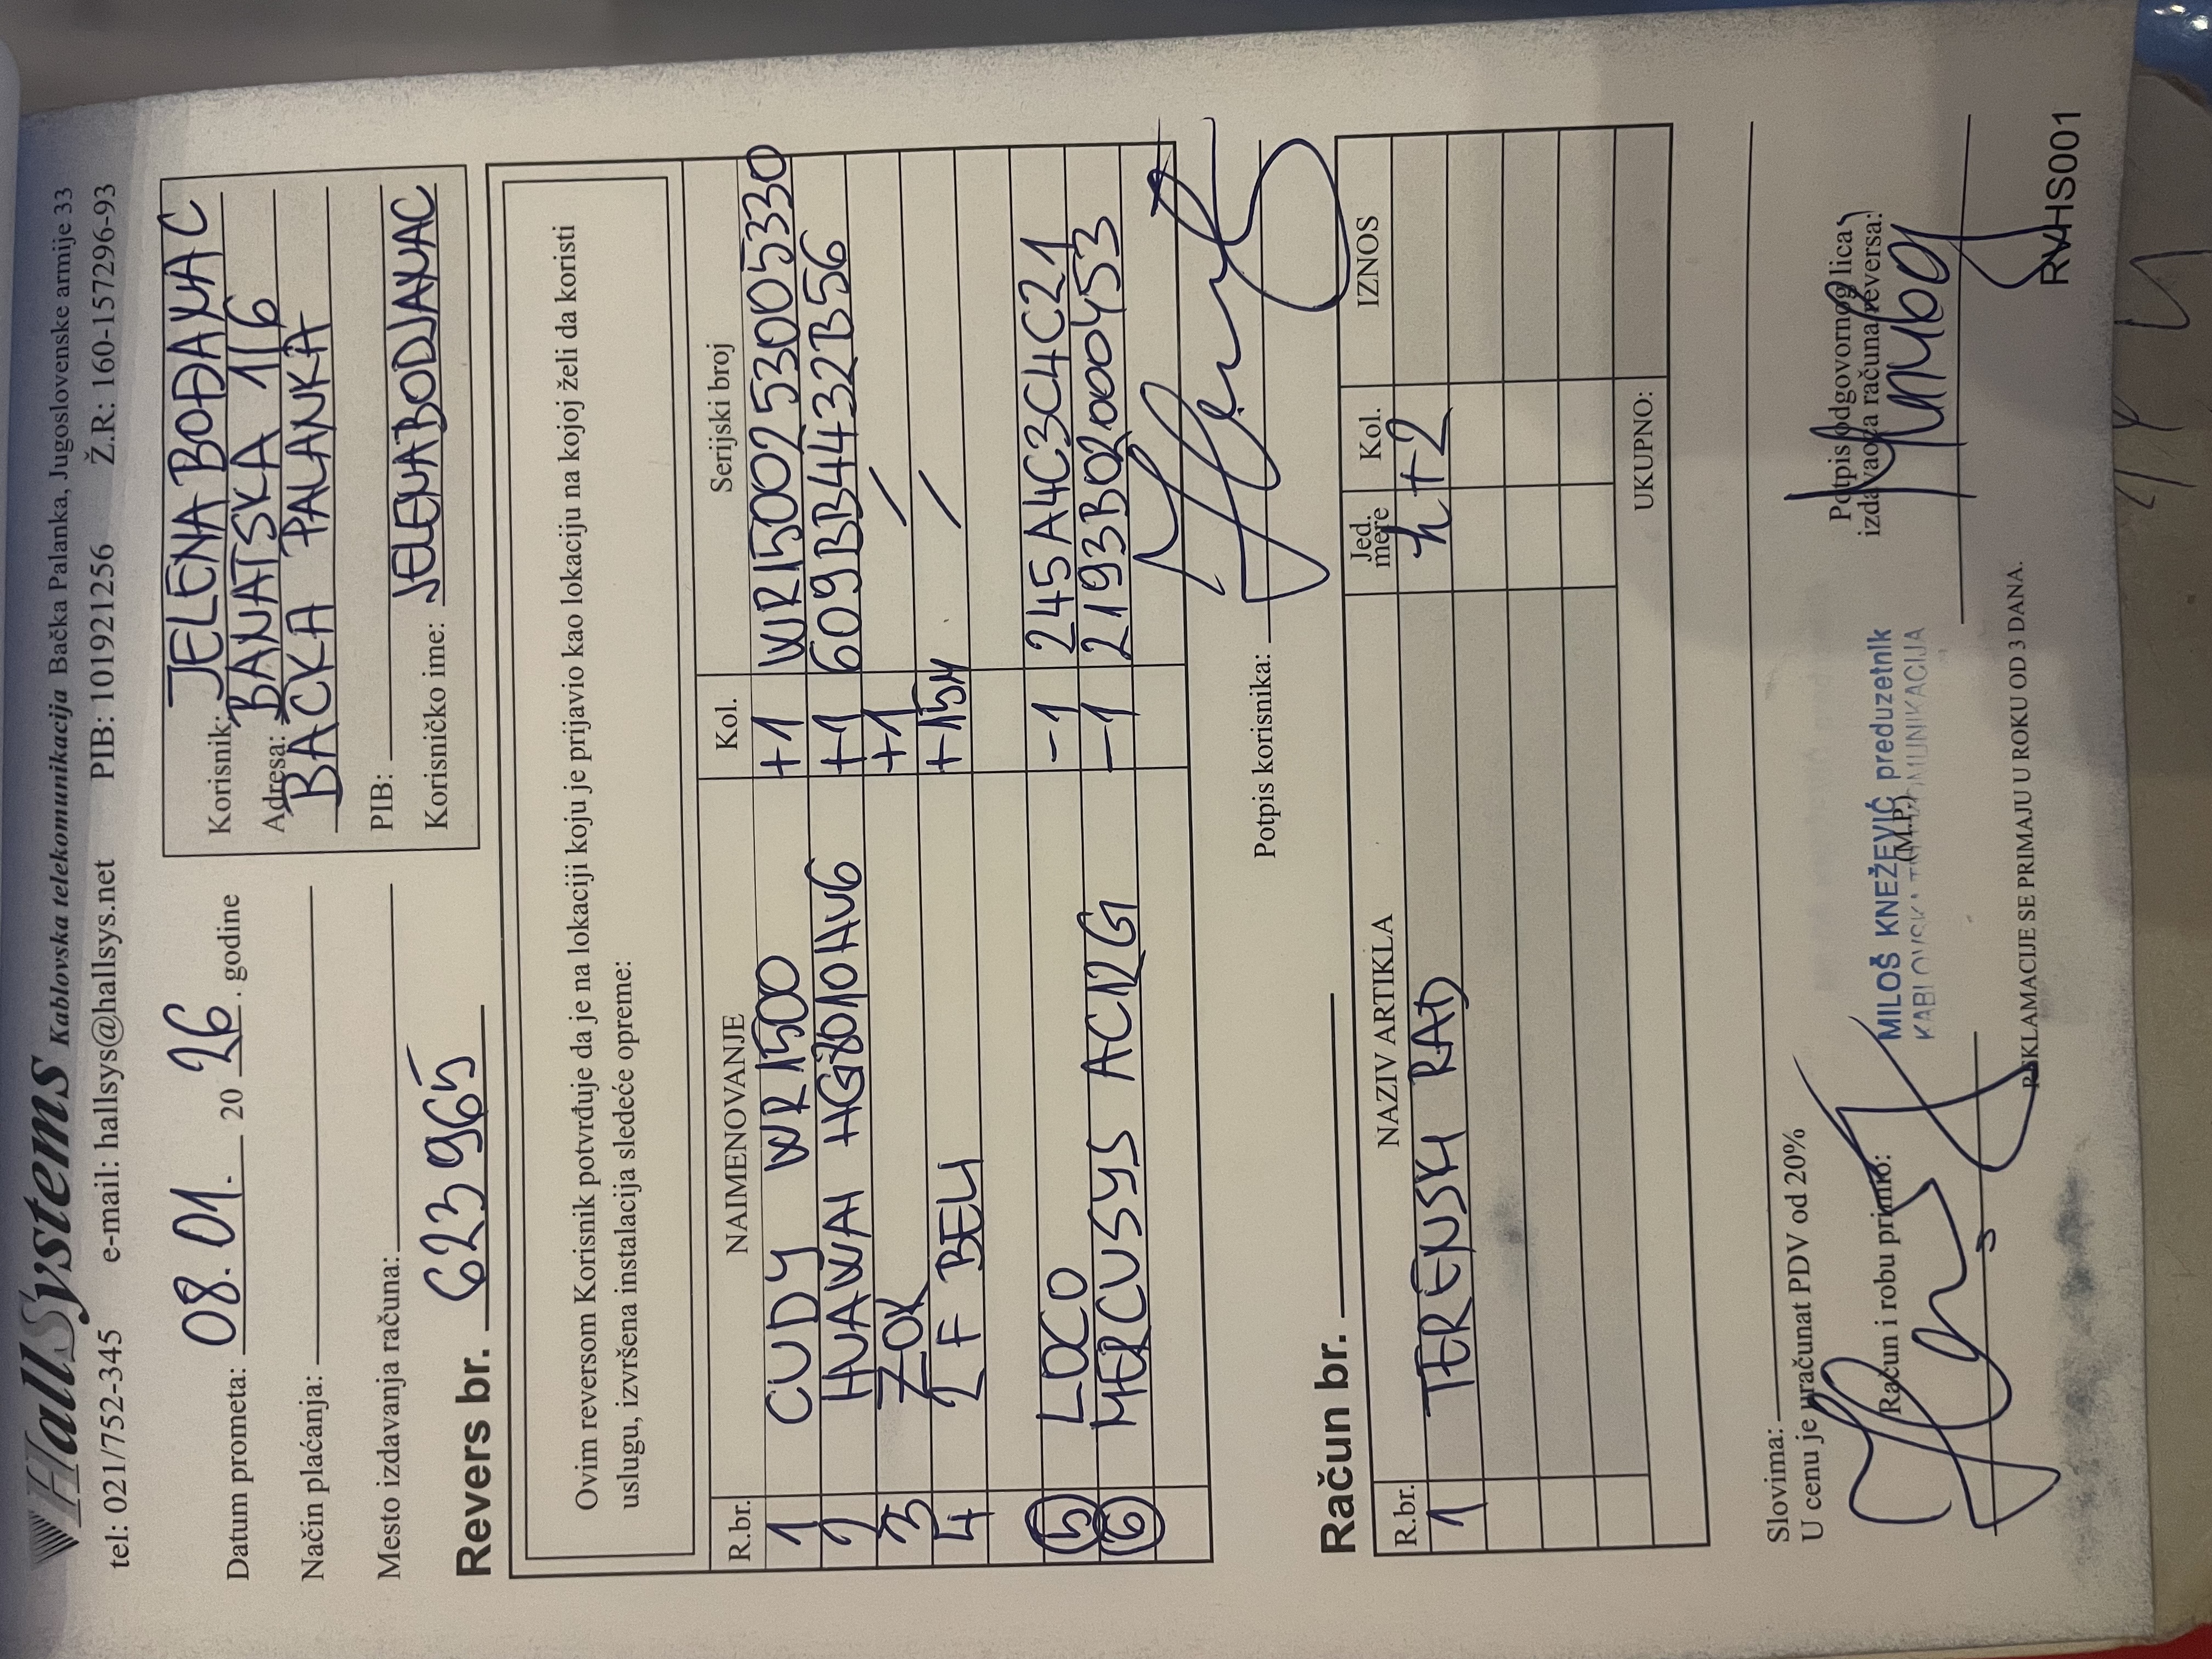 HallSystems Kablovska telekomunikacija Bačka Palanka, Jugoslovenske armije 33
tel: 021/752-345 e-mail: hallsys@hallsys.net PIB: 101921256 Ž.R: 160-157296-93
Datum prometa: 08.01. 20 26. godine
Način plaćanja:
Mesto izdavanja računa:
Korisnik: JELENA BOĐANAC
Adresa: BANATSKA 116
BACKA PALANKA
PIB:
Korisničko ime: JELENABODJANAC
Revers br. 623965
Ovim reversom Korisnik potvrđuje da je na lokaciji koju je prijavio kao lokaciju na kojoj želi da koristi
uslugu, izvršena instalacija sledeće opreme:
R.br. NAIMENOVANJE Kol. Serijski broj
1 CUDY WR1500 +1 WR15002530053​30
2 HUAWAI HG8010HV6 +1 609BB44432B56
3 ZOK +1 /
4 2F BELI +15M /
5 LOCO -1 245A4C3C4C21
6 MERCUSYS AC12G -1 2193B02000453
Potpis korisnika:
Račun br.
R.br. NAZIV ARTIKLA Jed. mere Kol. IZNOS
1 TERENSKI RAD h +2
UKUPNO:
Slovima:
U cenu je uračunat PDV od 20%
Račun i robu primio:
MILOŠ KNEŽEVIĆ preduzetnik
KABLOVSKA TELEKOMUNIKACIJA
(M.P.)
Potpis odgovornog lica
izdavaoca računa/reversa:
REKLAMACIJE SE PRIMAJU U ROKU OD 3 DANA.
RVHS001